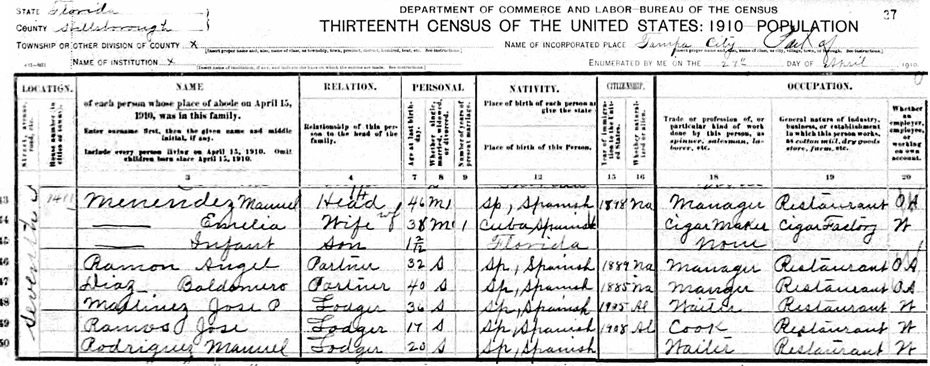 STATE Florida
COUNTY Hillsborough
TOWNSHIP OR OTHER DIVISION OF COUNTY X
NAME OF INSTITUTION X
DEPARTMENT OF COMMERCE AND LABOR-BUREAU OF THE CENSUS
37
THIRTEENTH CENSUS OF THE UNITED STATES: 1910 POPULATION
NAME OF INCORPORATED PLACE Tampa City
ENUMERATED BY ME ON THE 27th DAY OF April, 1910
LOCATION.
Street, avenue, road, etc.
House number in cities or towns
NAME
of each person whose place of abode on April 15, 1910, was in this family.
Enter surname first, then the given name and middle initial, if any.
Include every person living on April 15, 1910. Omit children born since April 15, 1910.
3
RELATION.
Relationship of this person to the head of the family.
4
PERSONAL
Age at last birthday.
7
Whether single, married, widowed, or divorced.
8
Number of years of present marriage.
9
NATIVITY.
Place of birth of each person
give the state
Place of birth of this Person.
12
CITIZENSHIP.
Year of immigration to the United States.
15
16
OCCUPATION.
Trade or profession of, or particular kind of work done by this person, as spinner, salesman, laborer, etc.
18
General nature of industry, business, or establishment in which this person works, as cotton mill, dry goods store, farm, etc.
19
Whether an employer, employee, or working on own account.
20
1411 Menendez Manuel Head 46 M1 Sp, Spanish 1898 Na Manager Restaurant OA
— Emelia Wife 38 M1 1 Cuba Spanish Cigar Maker Cigar Factory W
— Infant Son Florida None
46 Ramon Angel Partner 32 S Sp, Spanish 1889 Na Manager Restaurant OA
47 Diaz Baldomero Partner 40 S Sp, Spanish 1885 Na Manager Restaurant OA
48 Martinez Jose P Lodger 36 S Sp, Spanish 1905 Al Waiter Restaurant W
49 Ramos Jose Lodger 17 S Sp, Spanish 1908 Al Cook Restaurant W
50 Rodriguez Manuel Lodger 20 S Sp, Spanish Waiter Restaurant W